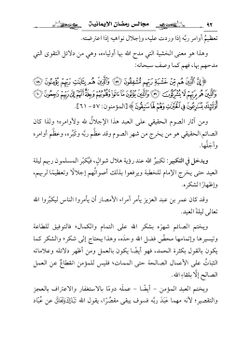 ٩٢ مجالس رمضان الإيمانية
تعظيمُ أوامر ربِّهِ إذا وردت عليه، وإجلال نواهيه إذا اعترضته.
وهذا هو معنى الخشية التي مدح الله بها أولياءه، وهي من دلائل التقوى التي
مدحهم بها، فهم كما وصف سبحانه:
﴿إِنَّ الَّذِينَ هُم مِّنْ خَشْيَةِ رَبِّهِم مُّشْفِقُونَ ۝ وَالَّذِينَ هُم بِآيَاتِ رَبِّهِمْ يُؤْمِنُونَ ۝
وَالَّذِينَ هُم بِرَبِّهِمْ لَا يُشْرِكُونَ ۝ وَالَّذِينَ يُؤْتُونَ مَا آتَوا وَّقُلُوبُهُمْ وَجِلَةٌ أَنَّهُمْ إِلَىٰ رَبِّهِمْ رَاجِعُونَ ۝
أُولَٰئِكَ يُسَارِعُونَ فِي الْخَيْرَاتِ وَهُمْ لَهَا سَابِقُونَ﴾ [المؤمنون: ٥٧ – ٦١].
ومن آثار الصوم الحقيقي على العبد هذا الإجلال لله ولأوامره؛ ولذا كان
الصائم الحقيقي هو من يخرج من شهر الصوم وقد عظَّم ربَّه وكبَّره، وعظَّم أوامره
وأجلَّها.
ويدخل في التكبير: تكبيرُ الله عند رؤية هلال شوال، فيُكبِّر المسلمون ربهم ليلة
العيد حتى يخرج الإمام للخطبة ويرفعوا بذلك أصواتهم إجلالًا وتعظيمًا لربهم،
وإظهارًا لشكره.
وقد كان عمر بن عبد العزيز يأمر أمراء الأمصار أن يأمروا الناس ليكبروا الله
تعالى ليلة العيد.
ويختم الصائم شهرَه بشكر الله على التمام والكمال؛ فالتوفيق للطاعة
وتيسيرها وإتمامها محضُ فضل الله وحده، وهذا يحتاج إلى شكر؛ والشكر كما
يكون بالقول بكثرة الحمد، فهو أيضًا يكون بالعمل ومن أظهر دلائله وعلاماته
الثباتُ على الأعمال الصالحة حتى الممات؛ فليس للمؤمن انقطاعٌ عن العمل
الصالح إلَّا بلقاء الله.
ويختتم العبد المؤمن – أيضًا – عملَه دومًا بالاستغفار والاعتراف بالعجز
والتقصير؛ لأنه مهما عَبَدَ ربَّه فسوف يبقى مقصِّرًا،